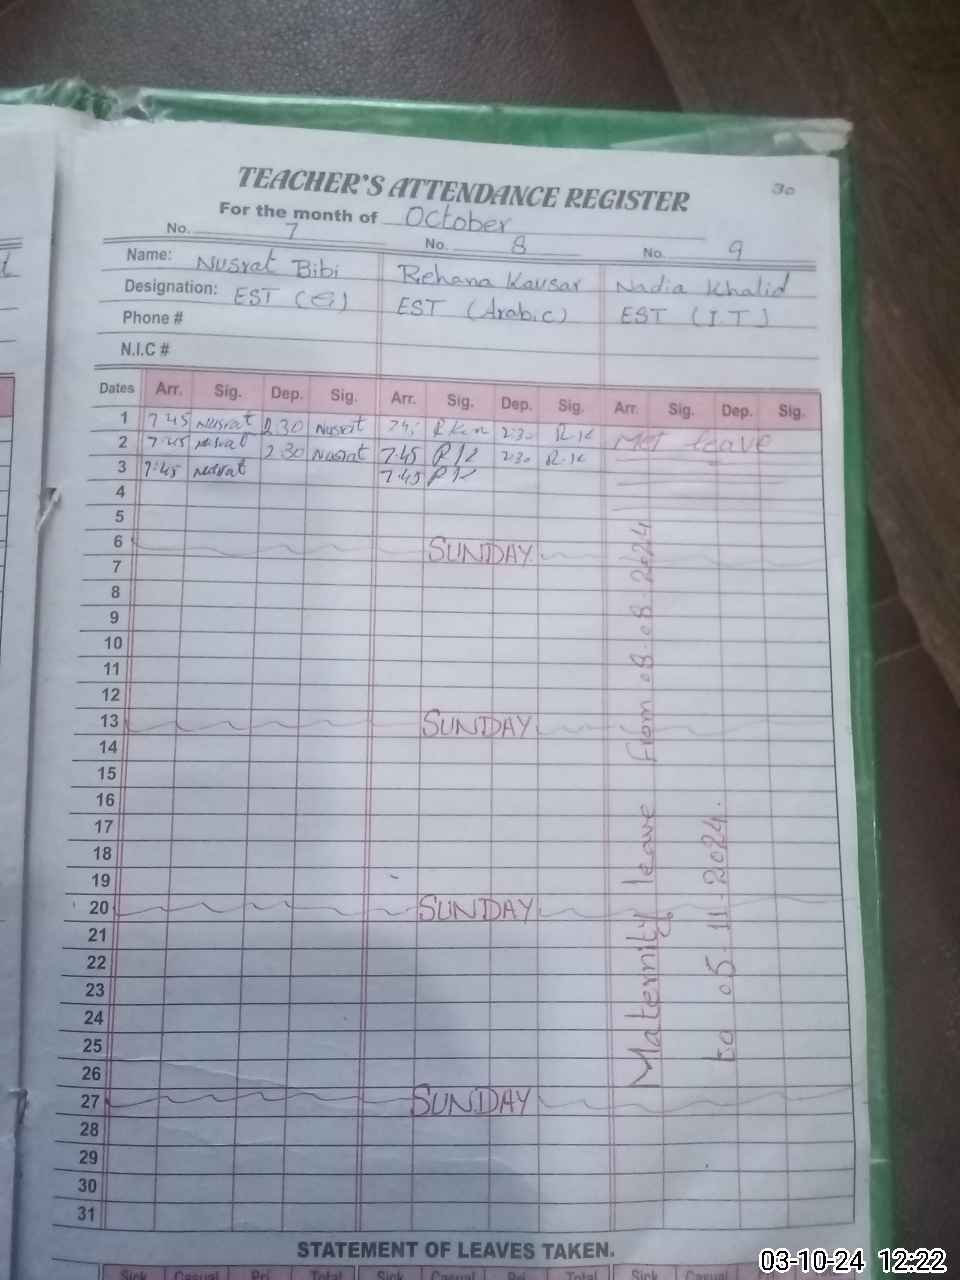 TEACHER'S ATTENDANCE REGISTER
30
For the month of October
No. 7 No. 8 No. 9
Name: Nusrat Bibi Rehana Kausar Nadia Khalid
Designation: EST (G) EST (Arabic) EST (I.T)
Phone #
N.I.C #
Dates Arr. Sig. Dep. Sig. Arr. Sig. Dep. Sig. Arr. Sig. Dep. Sig.
1 7.45 Nusrat 2.30 Nusrat 2:30 R.K leave
2 7.45 Nusrat 2:30 Nusrat 7.45 RK 2:30 R.K
3 7:45 Nusrat 7.45 RK
4
5
6 SUNDAY
7
8
9
10
11
12
13 SUNDAY
14
15
16
17
18
19
20 SUNDAY
21
22
23
24
25
26
27 SUNDAY
28
29
30
31
Maternity leave from 08.08.2024
to 05.11.2024.
STATEMENT OF LEAVES TAKEN.
Sick Casual Pri. Total Sick Casual Pri. Total Sick Casual Pri. Total
03-10-24 12:22